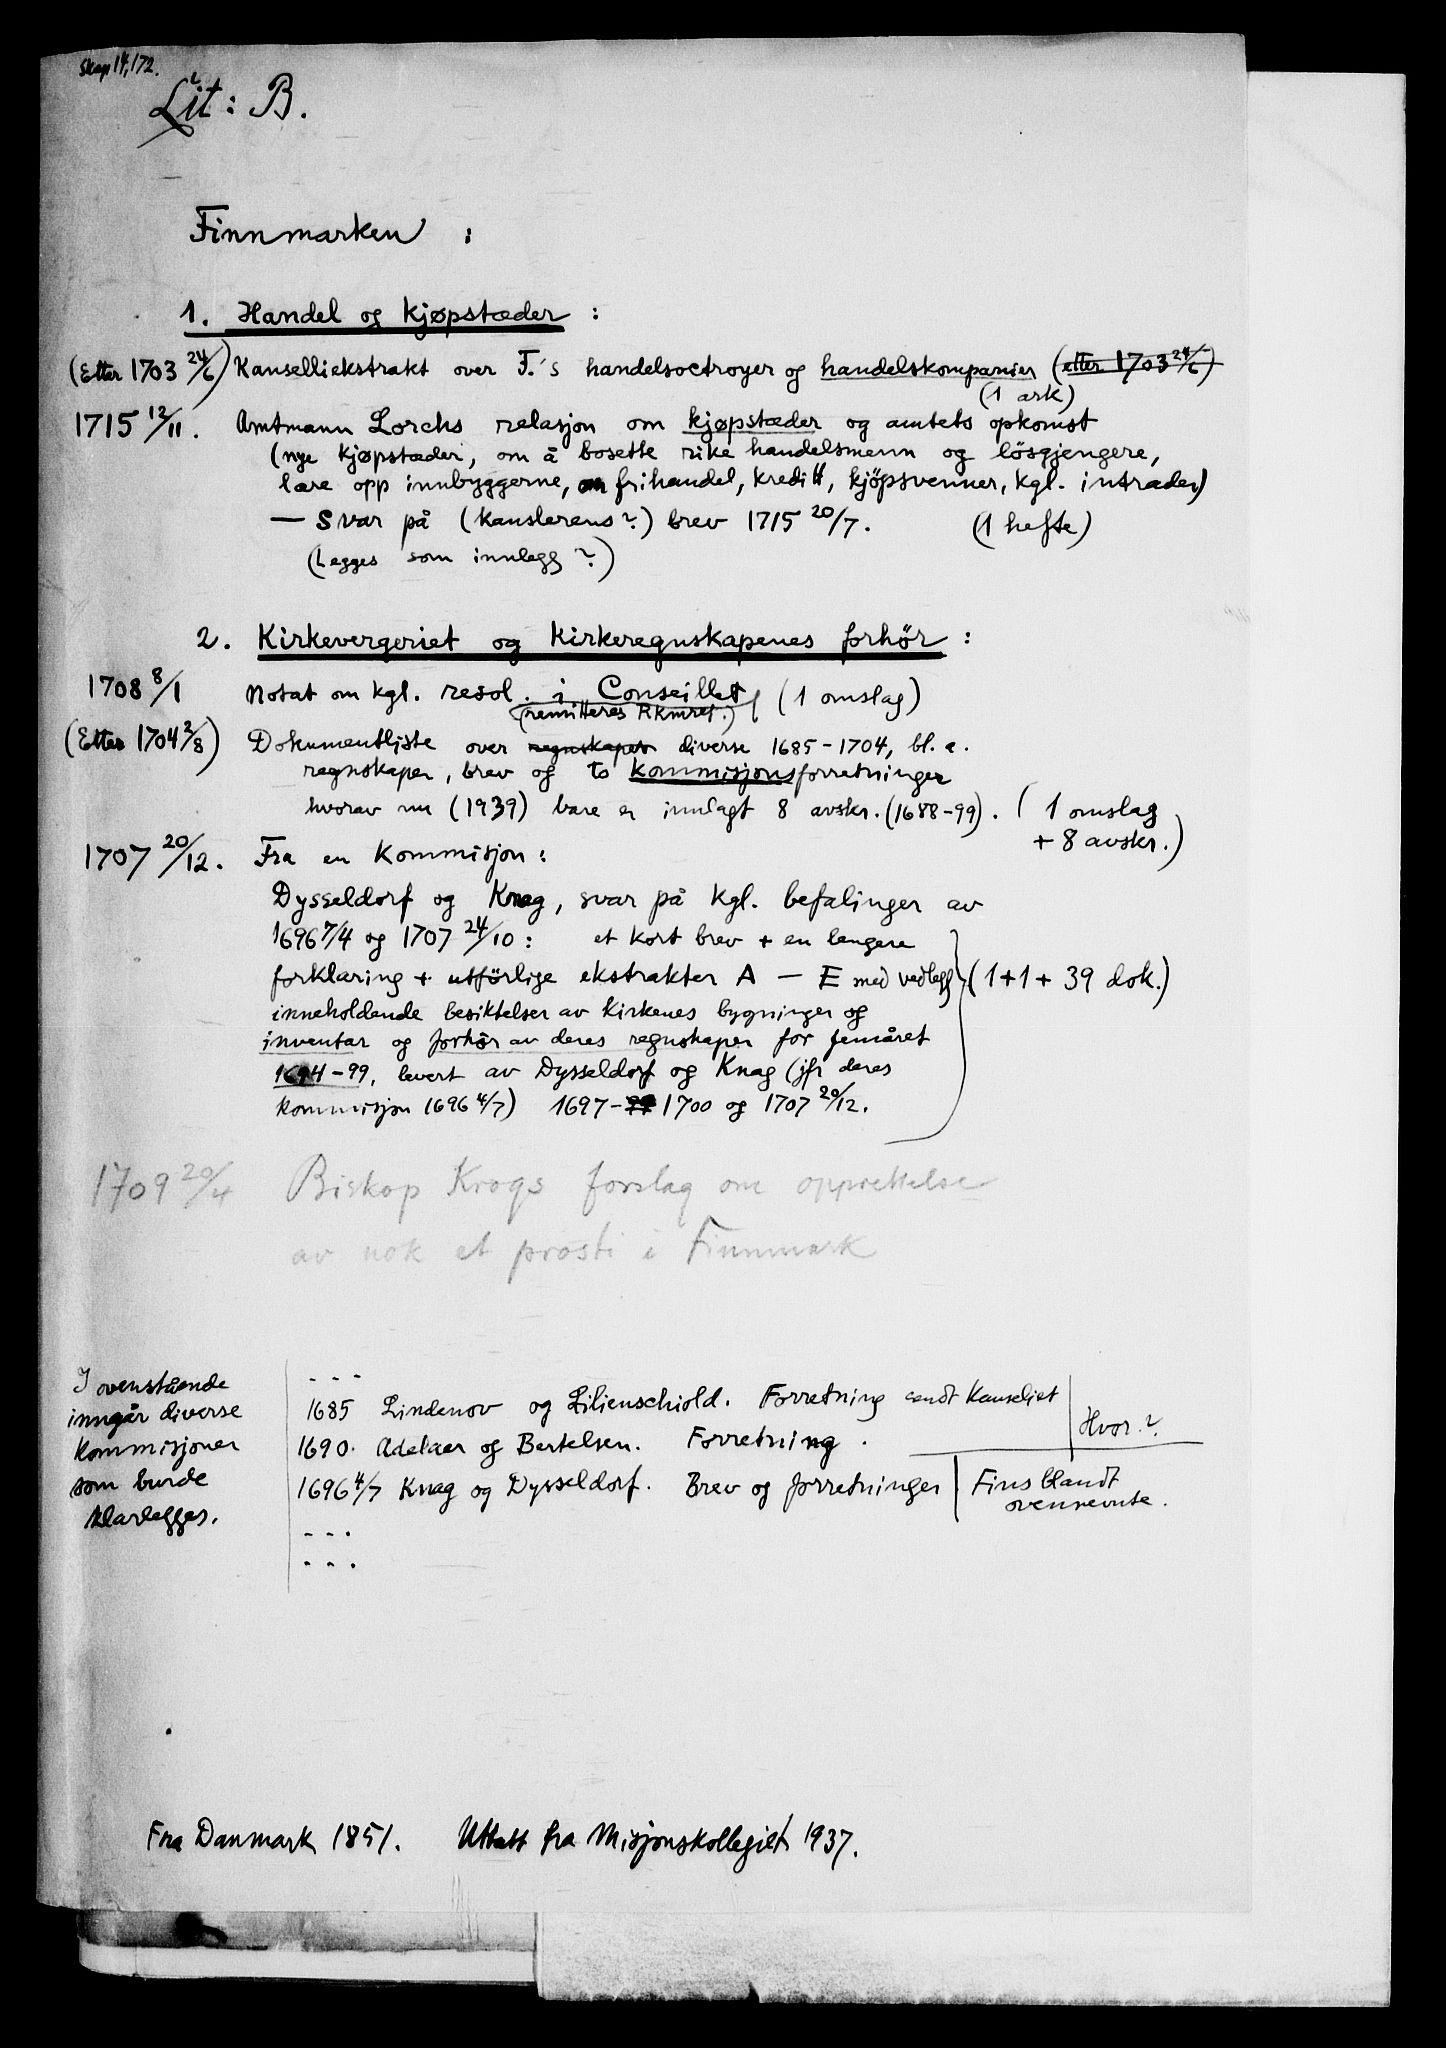 Skap 14,172.
Lit: B.
Finnmarken :
1. Handel og kjøpstæder :
(Etter 1703 24/6) Kanselliekstrakt over F.'s handelsoctroyer og handelskompanier (etter 1703 24/6)
(1 ark)
1715 12/11. Amtmann Lorchs relasjon om kjøpstæder og amtets opkomst
(nye kjøpstæder, om å bosette rike handelsmenn og lösgjengere,
lære opp innbyggerne, frihandel, kreditt, kjöpsvenner, kgl. intrader)
— Svar på (kanslerens?) brev 1715 20/7. (1 hefte)
(Legges som innlegg?)
2. Kirkevergeriet og Kirkeregnskapenes forhör :
1708 8/1 Notat om kgl. resol. i Conseillet (1 omslag)
(remitteres Rkmret.)
(Etter 1704 2/8) Dokumentliste over regnskaper diverse 1685-1704, bl. a.
regnskaper, brev og to kommisjonsforretninger
hvorav nu (1939) bare er innlagt 8 avskr. (1688-99). (1 omslag
+ 8 avskr.)
1707 20/12. Fra en Kommisjon:
Dysseldorf og Knag, svar på kgl. befalinger av
1696 7/4 og 1707 24/10: et kort brev + en lengere
forklaring + utförlige ekstrakter A — E med vedlegg (1+1+ 39 dok.)
inneholdende besiktelser av kirkenes bygninger og
inventar og forhör av deres regnskaper for femåret
1694-99, levert av Dysseldorf og Knag (jfr deres
kommisjon 1696 4/7) 1697-99 1700 og 1707 20/12.
1709 20/4 Biskop Krogs forslag om opprettelse
av nok et prosti i Finnmark
I ovenstående
inngår diverse
kommisjoner
som burde
klarlegges.
- - -
1685 Lindenov og Lilienschiold. Forretning sendt Kanseliet
1690. Adelaer og Bertelsen. Forretning.
Hvor?
1696 4/7 Knag og Dysseldorf. Brev og forretninger
Fins blandt
ovennevnte.
- - .
- - .
Fra Danmark 1851. Uttatt fra Misjonskollegiet 1937.